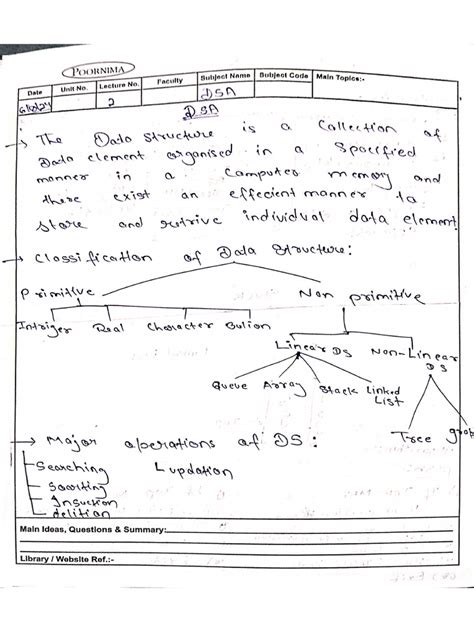 POORNIMA
Date Unit No. Lecture No. Faculty Subject Name Subject Code Main Topics:-
2 DSA
DSA
→ The Data structure is a Collection of
Data element organised in a Specified
manner in a Computer memory and
there exist an effecient manner to
store and retrive individual data element
→ Classification of Data Structure:
Primitive Non primitive
Intriger Real Character Bulion Linear DS Non-Linear DS
Queue Array Stack Linked List
Tree grap
→ Major operations of DS:
Searching updation
Soarting
Insuction
delition
Main Ideas, Questions & Summary:
Library / Website Ref.:-